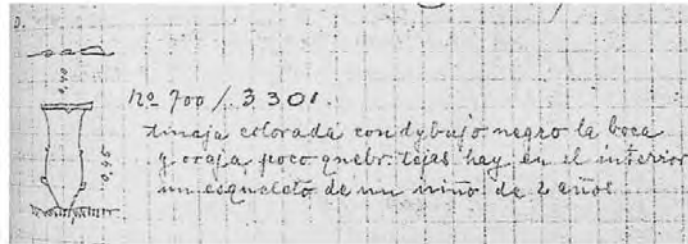 D.
0,40
0,46.
nº 700 / 3301.
tinaja colorada con dybujo negro la boca
y oreja poco quebr. tejas hay en el interior
un esqueleto de un niño de 2 años